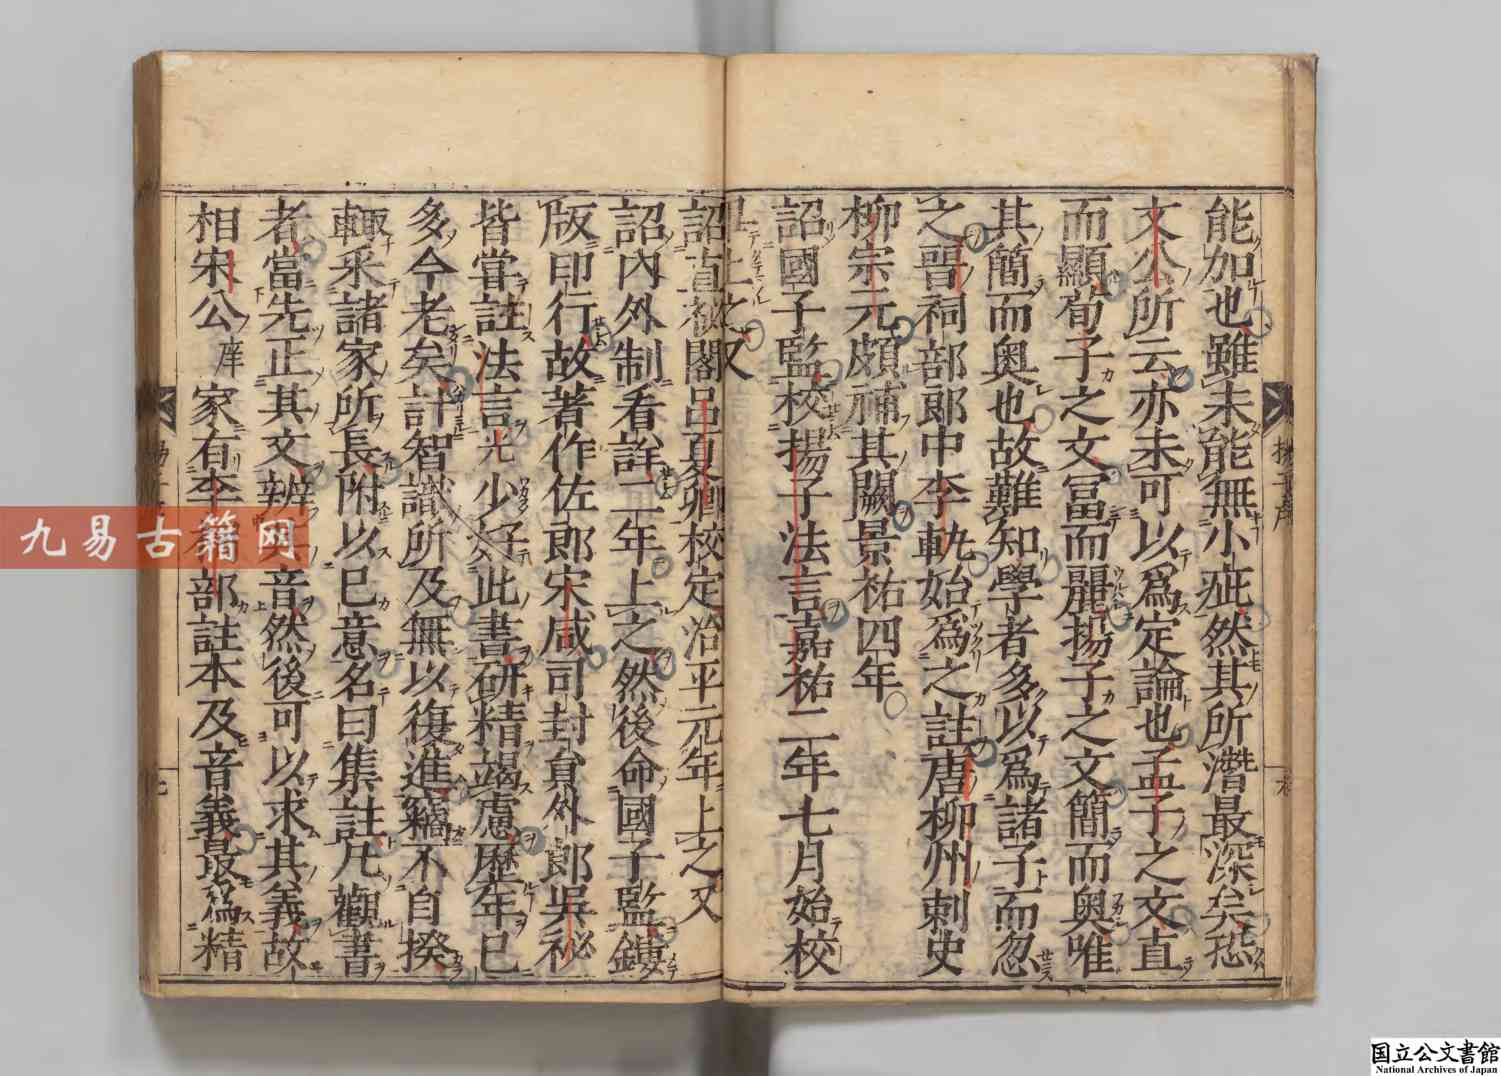 能加也雖未能無小疵然其所潛最深矣恐
文公所云亦未可以爲定論也孟子之文直
而顯荀子之文冨而麗揚子之文簡而奥唯
其簡而奥也故難知學者多以爲諸子而忽
之晋祠部郎中李軌始爲之註唐柳州刺史
柳宗元頗補其闕景祐四年
詔國子監校揚子法言嘉祐二年七月始校
畢上之又
詔直祕閣呂夏卿校定治平元年上之又
詔內外制看詳二年上之然後命國子監鏤
版印行故著作佐郎宋咸司封貟外郎吳祕
皆嘗註法言光少好此書研精竭慮歷年已
多今老矣計智識所及無以復進竊不自揆
輙采諸家所長附以已意名曰集註凡觀書
者當先正其文辨其音然後可以求其義故
相宋公庠家有李祠部註本及音義最爲精
九易古籍网
国立公文書館
National Archives of Japan